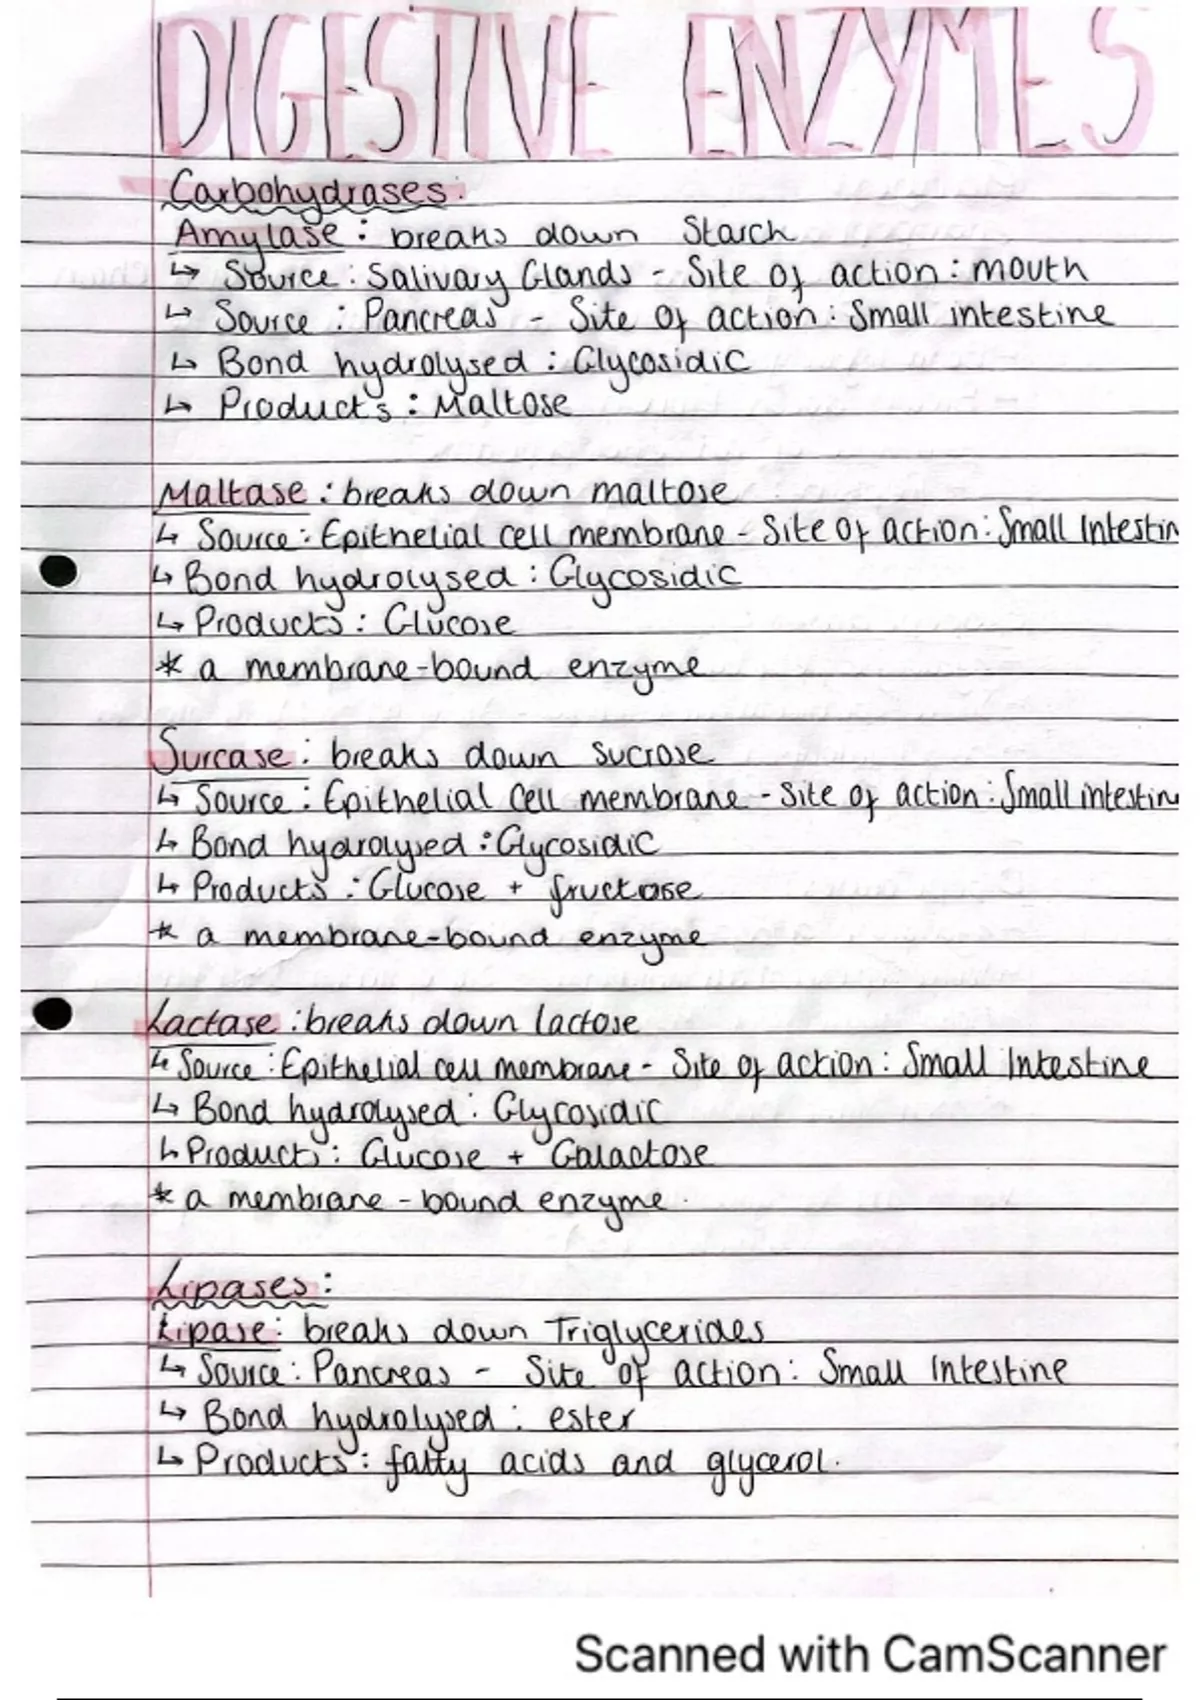 DIGESTIVE ENZYMES
Carbohydrases:
Amylase : breaks down Starch
↳ Source : Salivary Glands - Site of action : mouth
↳ Source : Pancreas - Site of action : Small intestine
↳ Bond hydrolysed : Glycosidic
↳ Products : Maltose
Maltase : breaks down maltose
↳ Source : Epithelial cell membrane - Site of action : Small Intestin
↳ Bond hydrolysed : Glycosidic
↳ Products : Glucose
* a membrane-bound enzyme
Surcase : breaks down sucrose
↳ Source : Epithelial Cell membrane - Site of action : Small intestin
↳ Bond hydrolysed : Glycosidic
↳ Products : Glucose + fructose
* a membrane-bound enzyme
Lactase : breaks down lactose
↳ Source : Epithelial cell membrane - Site of action : Small Intestine
↳ Bond hydrolysed : Glycosidic
↳ Products : Glucose + Galactose
* a membrane - bound enzyme .
Lipases :
Lipase : breaks down Triglycerides
↳ Source : Pancreas - Site of action : Small Intestine
↳ Bond hydrolysed : ester
↳ Products : fatty acids and glycerol.
Scanned with CamScanner